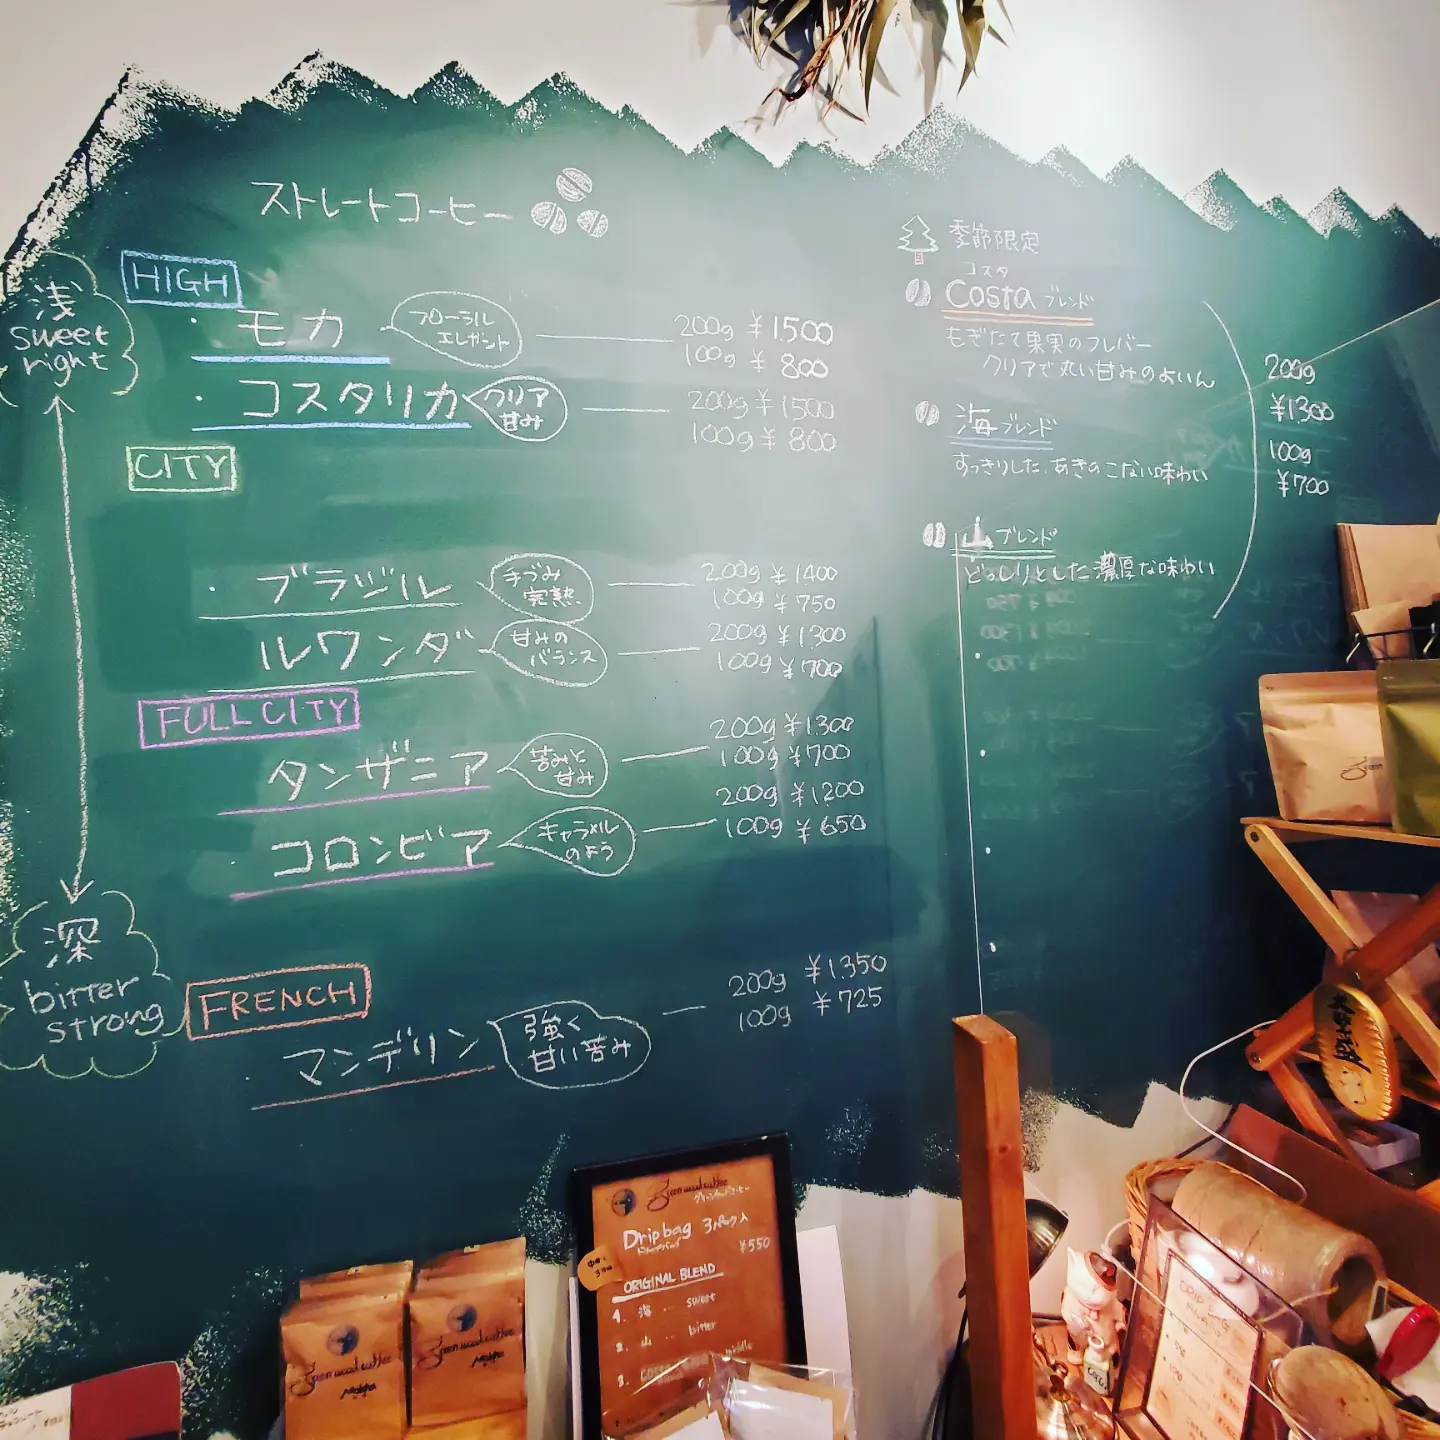 ストレートコーヒー
浅
sweet
right
HIGH
・モカ
フローラル
エレガント
200g ¥1500
100g ¥800
・コスタリカ
クリア
甘み
200g ¥1500
100g ¥800
CITY
・ブラジル
手づみ
完熟
200g ¥1400
100g ¥750
ルワンダ
甘みの
バランス
200g ¥1300
100g ¥700
FULL CITY
タンザニア
苦みと
甘み
200g ¥1300
100g ¥700
・コロンビア
キャラメル
のよう
200g ¥1200
100g ¥650
深
bitter
strong
FRENCH
・マンデリン
強く
甘い苦み
200g ¥1350
100g ¥725
季節限定
コスタ
Costaブレンド
もぎたて果実のフレバー
クリアで丸い甘みのよいん
海ブレンド
すっきりした、あきのこない味わい
山ブレンド
どっしりとした濃厚な味わい
200g
¥1300
100g
¥700
Green wood coffee
グリーンウッドコーヒー
Dripbag 3パック入
ドリップバッグ
¥550
ORIGINAL BLEND
1. 海 … sweet
2. 山 … bitter
3.
Green wood coffee
Mokha
Green wood coffee
Mokha